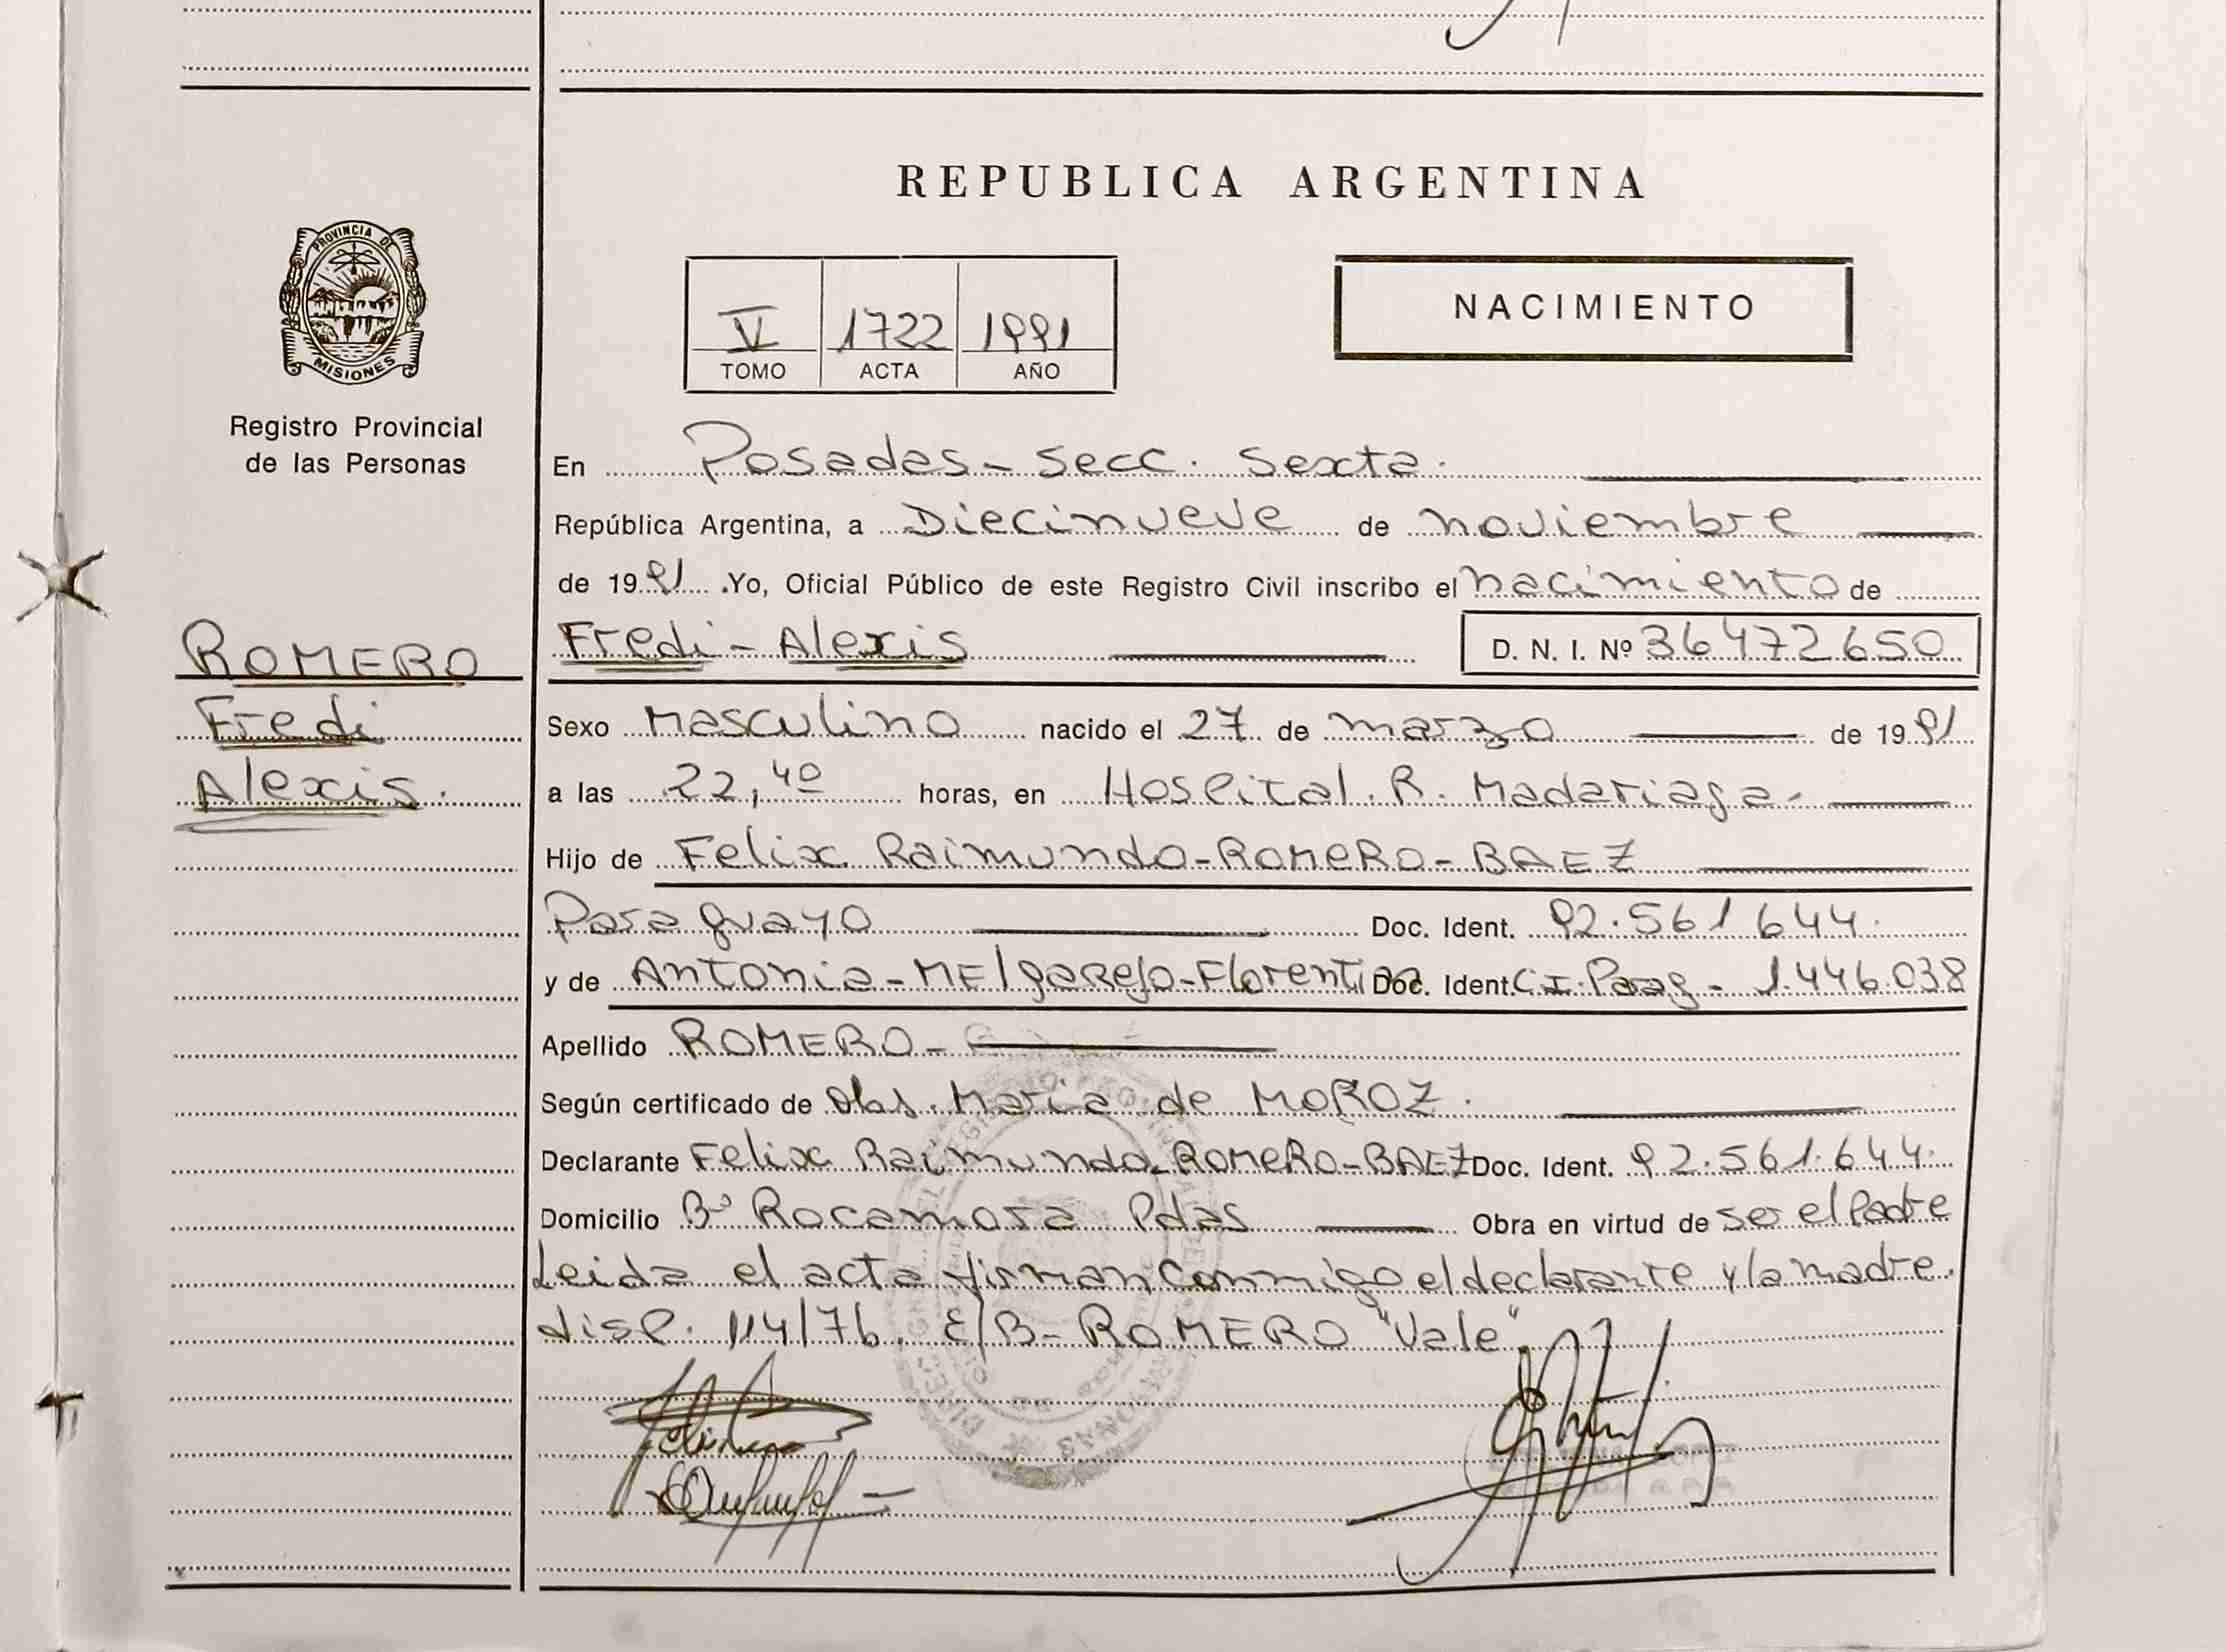 REPUBLICA ARGENTINA
PROVINCIA DE
MISIONES
Registro Provincial
de las Personas
V 1722 1991
TOMO ACTA AÑO
NACIMIENTO
En Posadas - Secc. Sexta.
República Argentina, a Diecinueve de noviembre
de 1991 .Yo, Oficial Público de este Registro Civil inscribo el nacimiento de
ROMERO
Fredi
Alexis.
Fredi - Alexis D. N. I. Nº 36472650
Sexo Masculino nacido el 27 de marzo de 1991
a las 22,40 horas, en Hospital. R. Madariaga -
Hijo de Felix Raimundo - ROMERO - BAEZ
Paraguayo Doc. Ident. 92.561644.
y de Antonia - MElgarejo - Florentin Doc. Ident. C.I. Parag - 1.446.038
Apellido ROMERO -
Según certificado de Obs. Maria de MOROZ.
Declarante Felix Raimundo - ROMERO - BAEZ Doc. Ident. 92.561.644.
Domicilio Bº Rocamora Pdas Obra en virtud de ser el Padre
Leida el acta firman conmigo el declarante y la madre.
disp. 114/76. E/B - ROMERO "Vale"